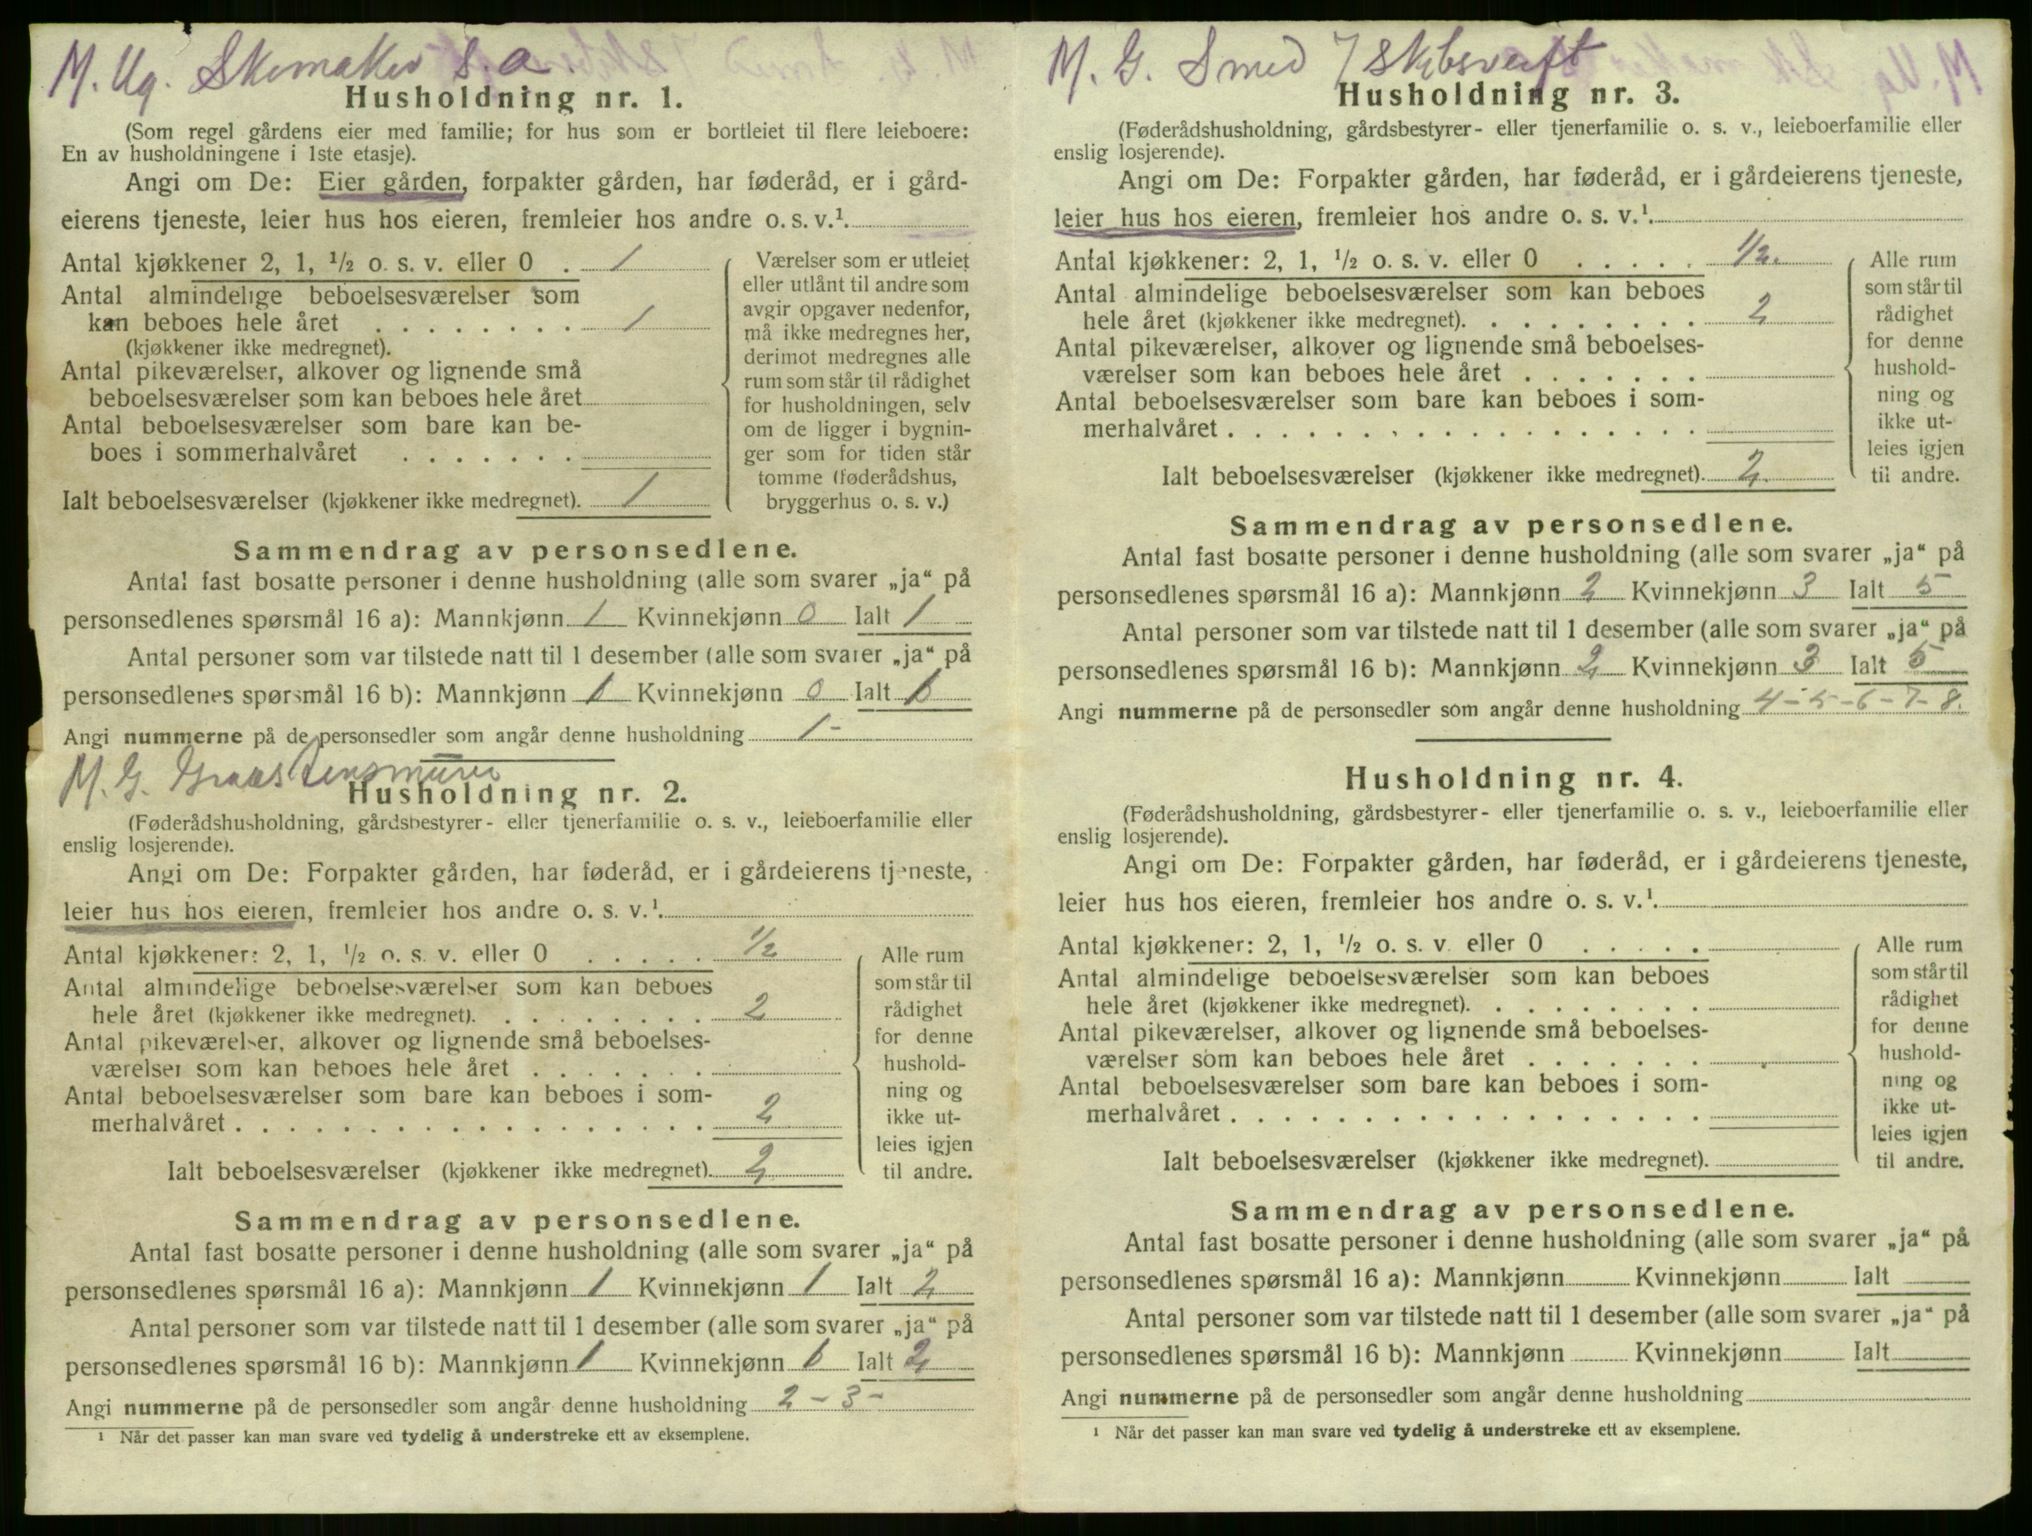 M. Ug. Skomaker s. a.
Husholdning nr. 1.
(Som regel gårdens eier med familie; for hus som er bortleiet til flere leieboere:
En av husholdningene i 1ste etasje).
Angi om De: Eier gården, forpakter gården, har føderåd, er i gård-
eierens tjeneste, leier hus hos eieren, fremleier hos andre o. s. v.¹.
Antal kjøkkener 2, 1, ½ o. s. v. eller 0 . 1
Antal almindelige beboelsesværelser som
kan beboes hele året . . . . . . . . 1
(kjøkkener ikke medregnet).
Antal pikeværelser, alkover og lignende små
beboelsesværelser som kan beboes hele året
Antal beboelsesværelser som bare kan be-
boes i sommerhalvåret . . . . . . .
Ialt beboelsesværelser (kjøkkener ikke medregnet). 1
Værelser som er utleiet
eller utlånt til andre som
avgir opgaver nedenfor,
må ikke medregnes her,
derimot medregnes alle
rum som står til rådighet
for husholdningen, selv
om de ligger i bygnin-
ger som for tiden står
tomme (føderådshus,
bryggerhus o. s. v.)
Sammendrag av personsedlene.
Antal fast bosatte personer i denne husholdning (alle som svarer „ja“ på
personsedlenes spørsmål 16 a): Mannkjønn 1 Kvinnekjønn 0 Ialt 1
Antal personer som var tilstede natt til 1 desember (alle som svarer „ja“ på
personsedlenes spørsmål 16 b): Mannkjønn 1 Kvinnekjønn 0 Ialt 1
Angi nummerne på de personsedler som angår denne husholdning 1-
M. G. Graastensmurer
Husholdning nr. 2.
(Føderådshusholdning, gårdsbestyrer- eller tjenerfamilie o. s. v., leieboerfamilie eller
enslig losjerende).
Angi om De: Forpakter gården, har føderåd, er i gårdeierens tjeneste,
leier hus hos eieren, fremleier hos andre o. s. v.¹.
Antal kjøkkener: 2, 1, ½ o. s. v. eller 0 . . . . . 1/2
Antal almindelige beboelsesværelser som kan beboes
hele året (kjøkkener ikke medregnet). . . . . . . . . 2
Antal pikeværelser, alkover og lignende små beboelses-
værelser som kan beboes hele året . . . . . . .
Antal beboelsesværelser som bare kan beboes i som-
merhalvåret . . . . . . . . . . . . . . . . . . 2
Ialt beboelsesværelser (kjøkkener ikke medregnet). 2
Alle rum
som står til
rådighet
for denne
hushold-
ning og
ikke ut-
leies igjen
til andre.
Sammendrag av personsedlene.
Antal fast bosatte personer i denne husholdning (alle som svarer „ja“ på
personsedlenes spørsmål 16 a): Mannkjønn 1 Kvinnekjønn 1 Ialt 2
Antal personer som var tilstede natt til 1 desember (alle som svarer „ja“ på
personsedlenes spørsmål 16 b): Mannkjønn 1 Kvinnekjønn 1 Ialt 2
Angi nummerne på de personsedler som angår denne husholdning 2 - 3 -
¹ Når det passer kan man svare ved tydelig å understreke ett av eksemplene.
M. G. Smed / Skibsverft
Husholdning nr. 3.
(Føderådshusholdning, gårdsbestyrer- eller tjenerfamilie o. s. v., leieboerfamilie eller
enslig losjerende).
Angi om De: Forpakter gården, har føderåd, er i gårdeierens tjeneste,
leier hus hos eieren, fremleier hos andre o. s. v.¹.
Antal kjøkkener: 2, 1, ½ o. s. v. eller 0 . . . . . 1/2.
Antal almindelige beboelsesværelser som kan beboes
hele året (kjøkkener ikke medregnet). . . . . . . . . 2
Antal pikeværelser, alkover og lignende små beboelses-
værelser som kan beboes hele året . . . . . . .
Antal beboelsesværelser som bare kan beboes i som-
merhalvåret . . . . . . . . . . . . . . . . . .
Ialt beboelsesværelser (kjøkkener ikke medregnet). 2.
Alle rum
som står til
rådighet
for denne
hushold-
ning og
ikke ut-
leies igjen
til andre.
Sammendrag av personsedlene.
Antal fast bosatte personer i denne husholdning (alle som svarer „ja“ på
personsedlenes spørsmål 16 a): Mannkjønn 2 Kvinnekjønn 3 Ialt 5
Antal personer som var tilstede natt til 1 desember (alle som svarer „ja“ på
personsedlenes spørsmål 16 b): Mannkjønn 2 Kvinnekjønn 3 Ialt 5
Angi nummerne på de personsedler som angår denne husholdning 4-5-6-7-8.
Husholdning nr. 4.
(Føderådshusholdning, gårdsbestyrer- eller tjenerfamilie o. s. v., leieboerfamilie eller
enslig losjerende).
Angi om De: Forpakter gården, har føderåd, er i gårdeierens tjeneste,
leier hus hos eieren, fremleier hos andre o. s. v.¹.
Antal kjøkkener: 2, 1, ½ o. s. v. eller 0 . . . . .
Antal almindelige beboelsesværelser som kan beboes
hele året (kjøkkener ikke medregnet). . . . . . . . .
Antal pikeværelser, alkover og lignende små beboelses-
værelser som kan beboes hele året . . . . . . .
Antal beboelsesværelser som bare kan beboes i som-
merhalvåret . . . . . . . . . . . . . . . . . .
Ialt beboelsesværelser (kjøkkener ikke medregnet).
Alle rum
som står til
rådighet
for denne
hushold-
ning og
ikke ut-
leies igjen
til andre.
Sammendrag av personsedlene.
Antal fast bosatte personer i denne husholdning (alle som svarer „ja“ på
personsedlenes spørsmål 16 a): Mannkjønn Kvinnekjønn Ialt
Antal personer som var tilstede natt til 1 desember (alle som svarer „ja“ på
personsedlenes spørsmål 16 b): Mannkjønn Kvinnekjønn Ialt
Angi nummerne på de personsedler som angår denne husholdning
¹ Når det passer kan man svare ved tydelig å understreke ett av eksemplene.